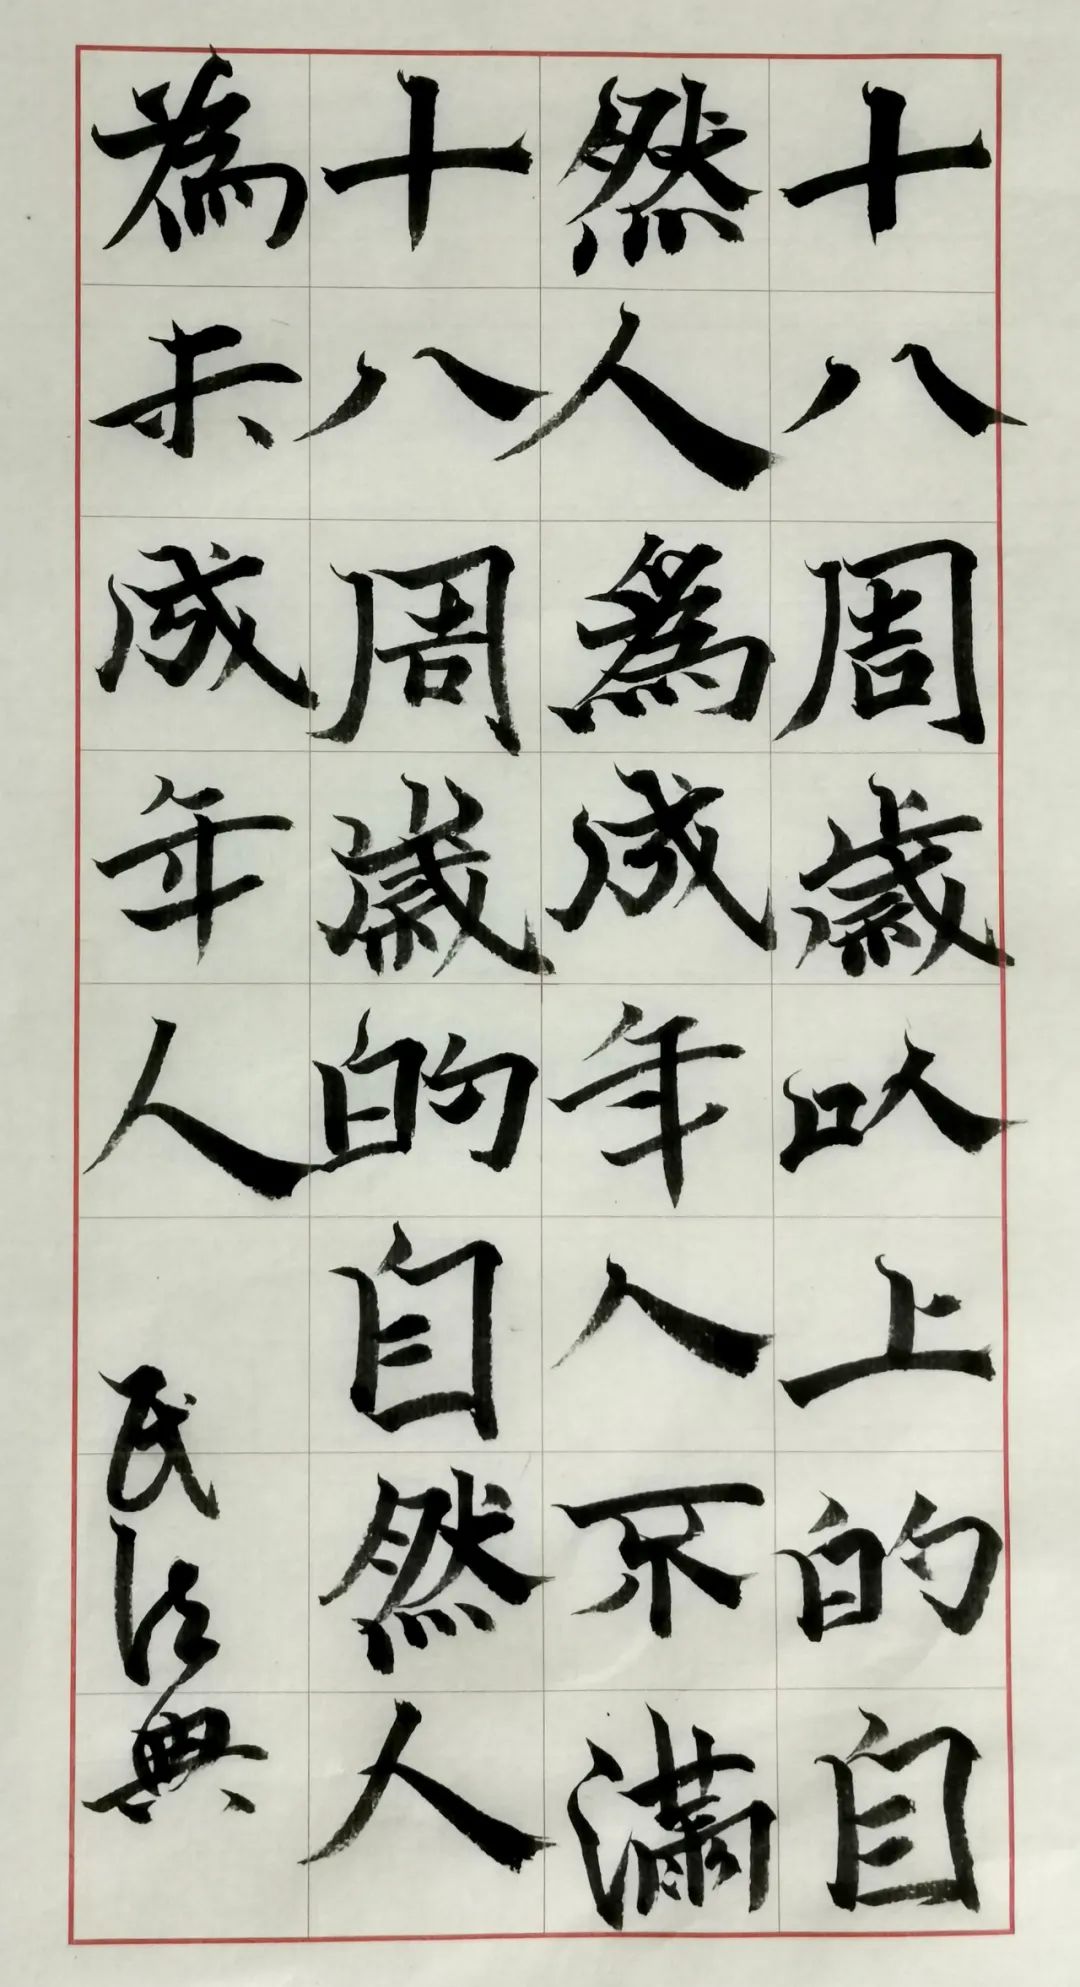 十八周歲以上的自
然人爲成年人不滿
十八周歲的自然人
為未成年人
民法典